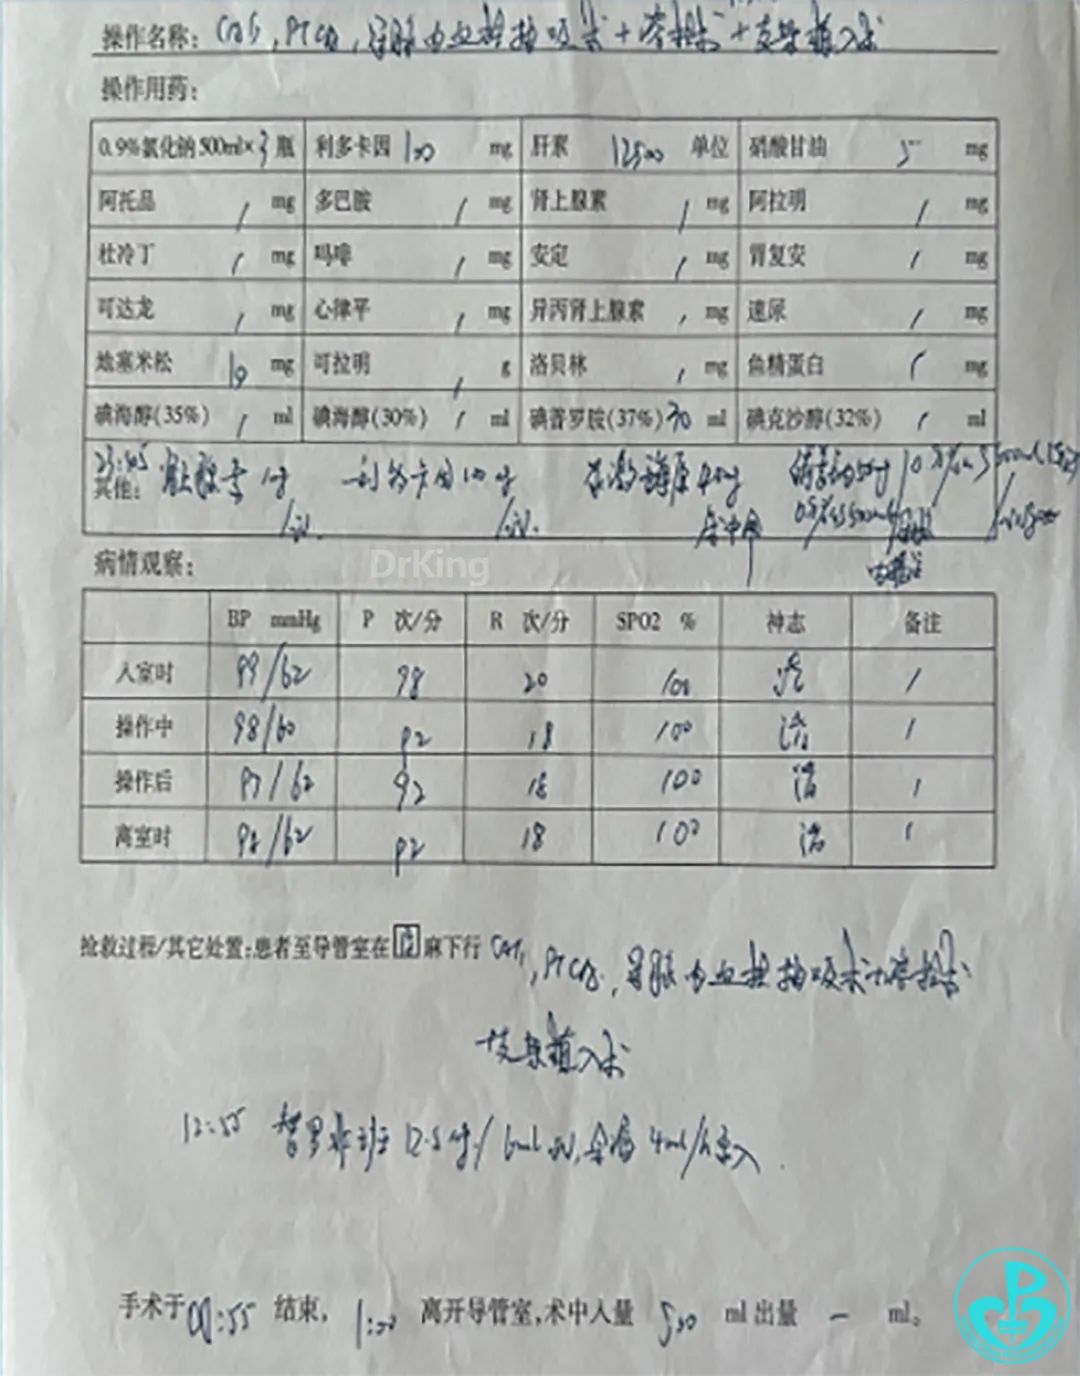 操作名称: CAG, PTCA, 冠脉内血栓抽吸术+溶栓术+支架植入术
操作用药:
0.9%氯化钠500ml×3 瓶 利多卡因 100 mg 肝素 12500 单位 硝酸甘油 5 mg
阿托品 / mg 多巴胺 / mg 肾上腺素 / mg 阿拉明 / mg
杜冷丁 / mg 吗啡 / mg 安定 / mg 胃复安 / mg
可达龙 / mg 心律平 / mg 异丙肾上腺素 / mg 速尿 / mg
地塞米松 10 mg 可拉明 / g 洛贝林 / mg 鱼精蛋白 / mg
碘海醇(35%) / ml 碘海醇(30%) / ml 碘普罗胺(37%) 70 ml 碘克沙醇(32%) / ml
23:45
其他: 利多卡因
DrKing
病情观察:
BP mmHg P 次/分 R 次/分 SPO2 % 神志 备注
入室时 99/62 98 20 100 清 /
操作中 98/60 92 18 100 清 /
操作后 97/62 92 18 100 清 /
离室时 98/62 92 18 100 清 /
抢救过程/其它处置:患者至导管室在局麻下行 CAG, PTCA, 冠脉内血栓抽吸术+溶栓术
+支架植入术
12:55 替罗非班 12.5mg/ 6ml iv, 余量 4ml/h泵入.
手术于00:55 结束, 1:00 离开导管室,术中入量 500 ml 出量 — ml。